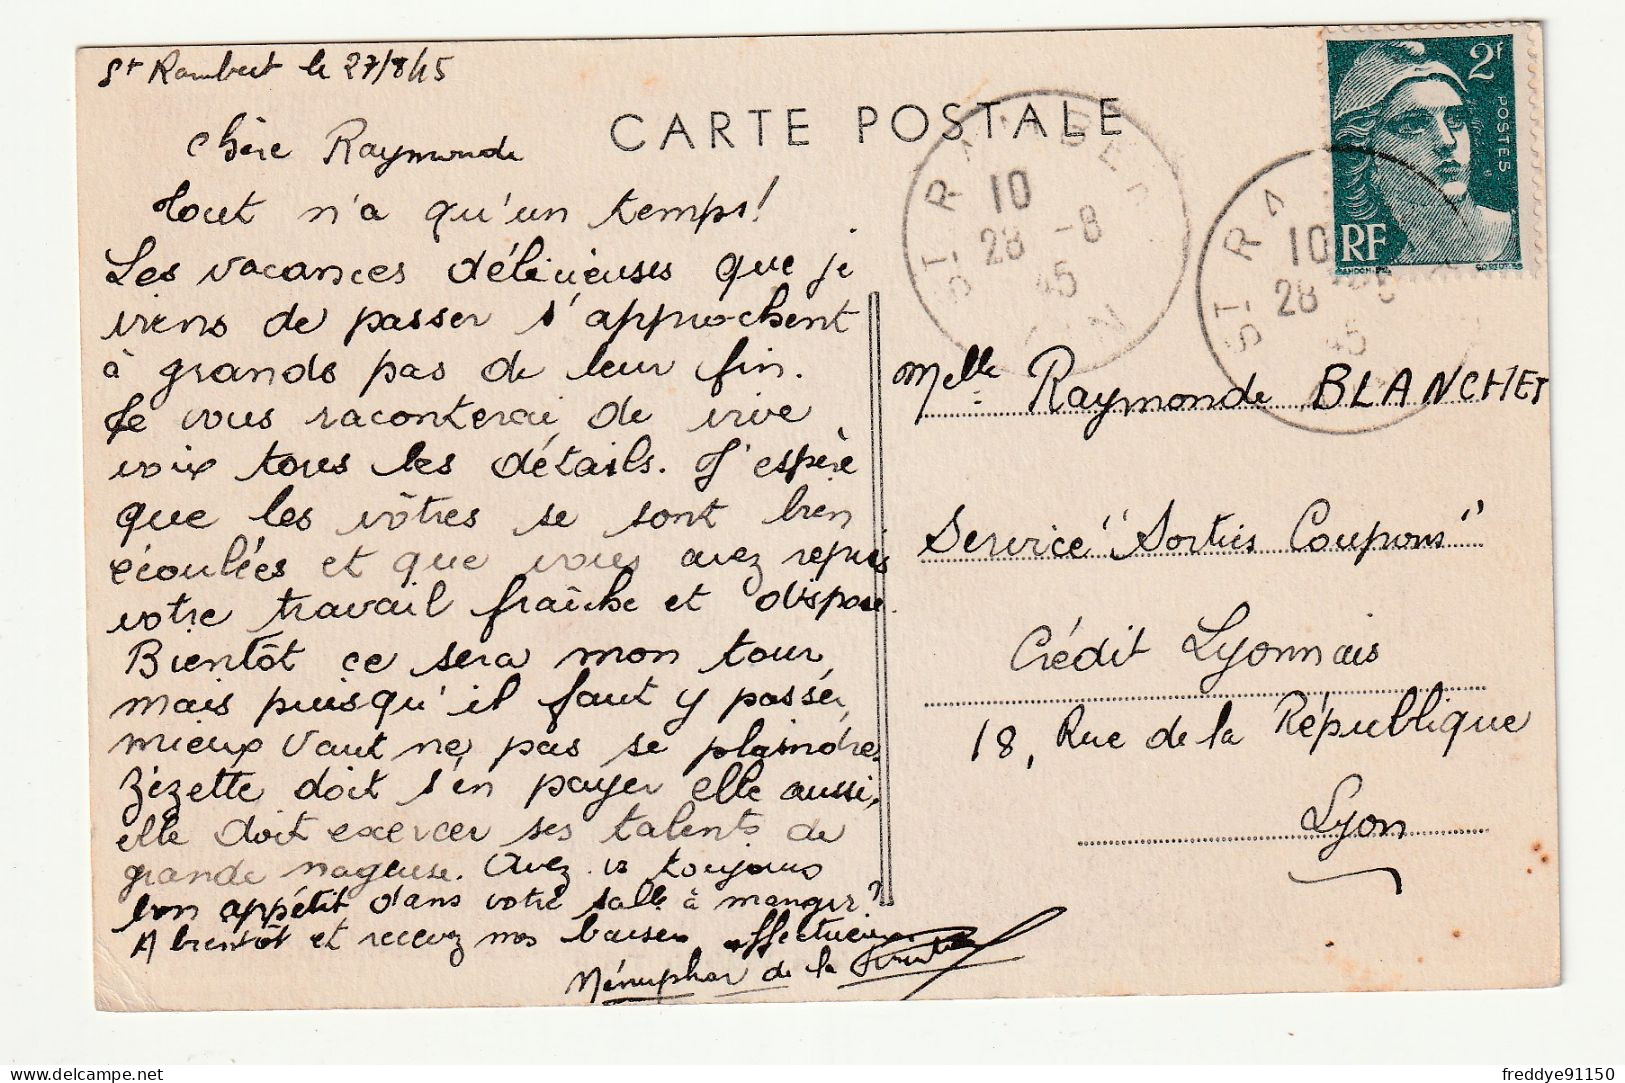 St Rambert le 27/8/45
CARTE POSTALE
Chère Raymonde
Tout n'a qu'un temps!
Les vacances délicieuses que je
viens de passer s'approchent
à grands pas de leur fin.
Je vous raconterai de vive
voix tous les détails. J'espère
que les vôtres se sont bien
écoulées et que vous avez repris
votre travail fraîche et dispose.
Bientôt ce sera mon tour,
mais puisqu'il faut y passer,
mieux vaut ne pas se plaindre.
Zézette doit s'en payer elle aussi,
elle doit exercer ses talents de
grande nageuse. Avez vs toujours
bon appétit dans votre salle à manger?
A bientôt et recevez mes baisers affectueux
Nénuphar de la
2f
POSTES
RF
ST RAMBERT
10
28 -8
45
AIN
ST RA
10
28 -8
45
Melle Raymonde BLANCHET
Service "Sorties Coupons"
Crédit Lyonnais
18, Rue de la République
Lyon
freddye91150